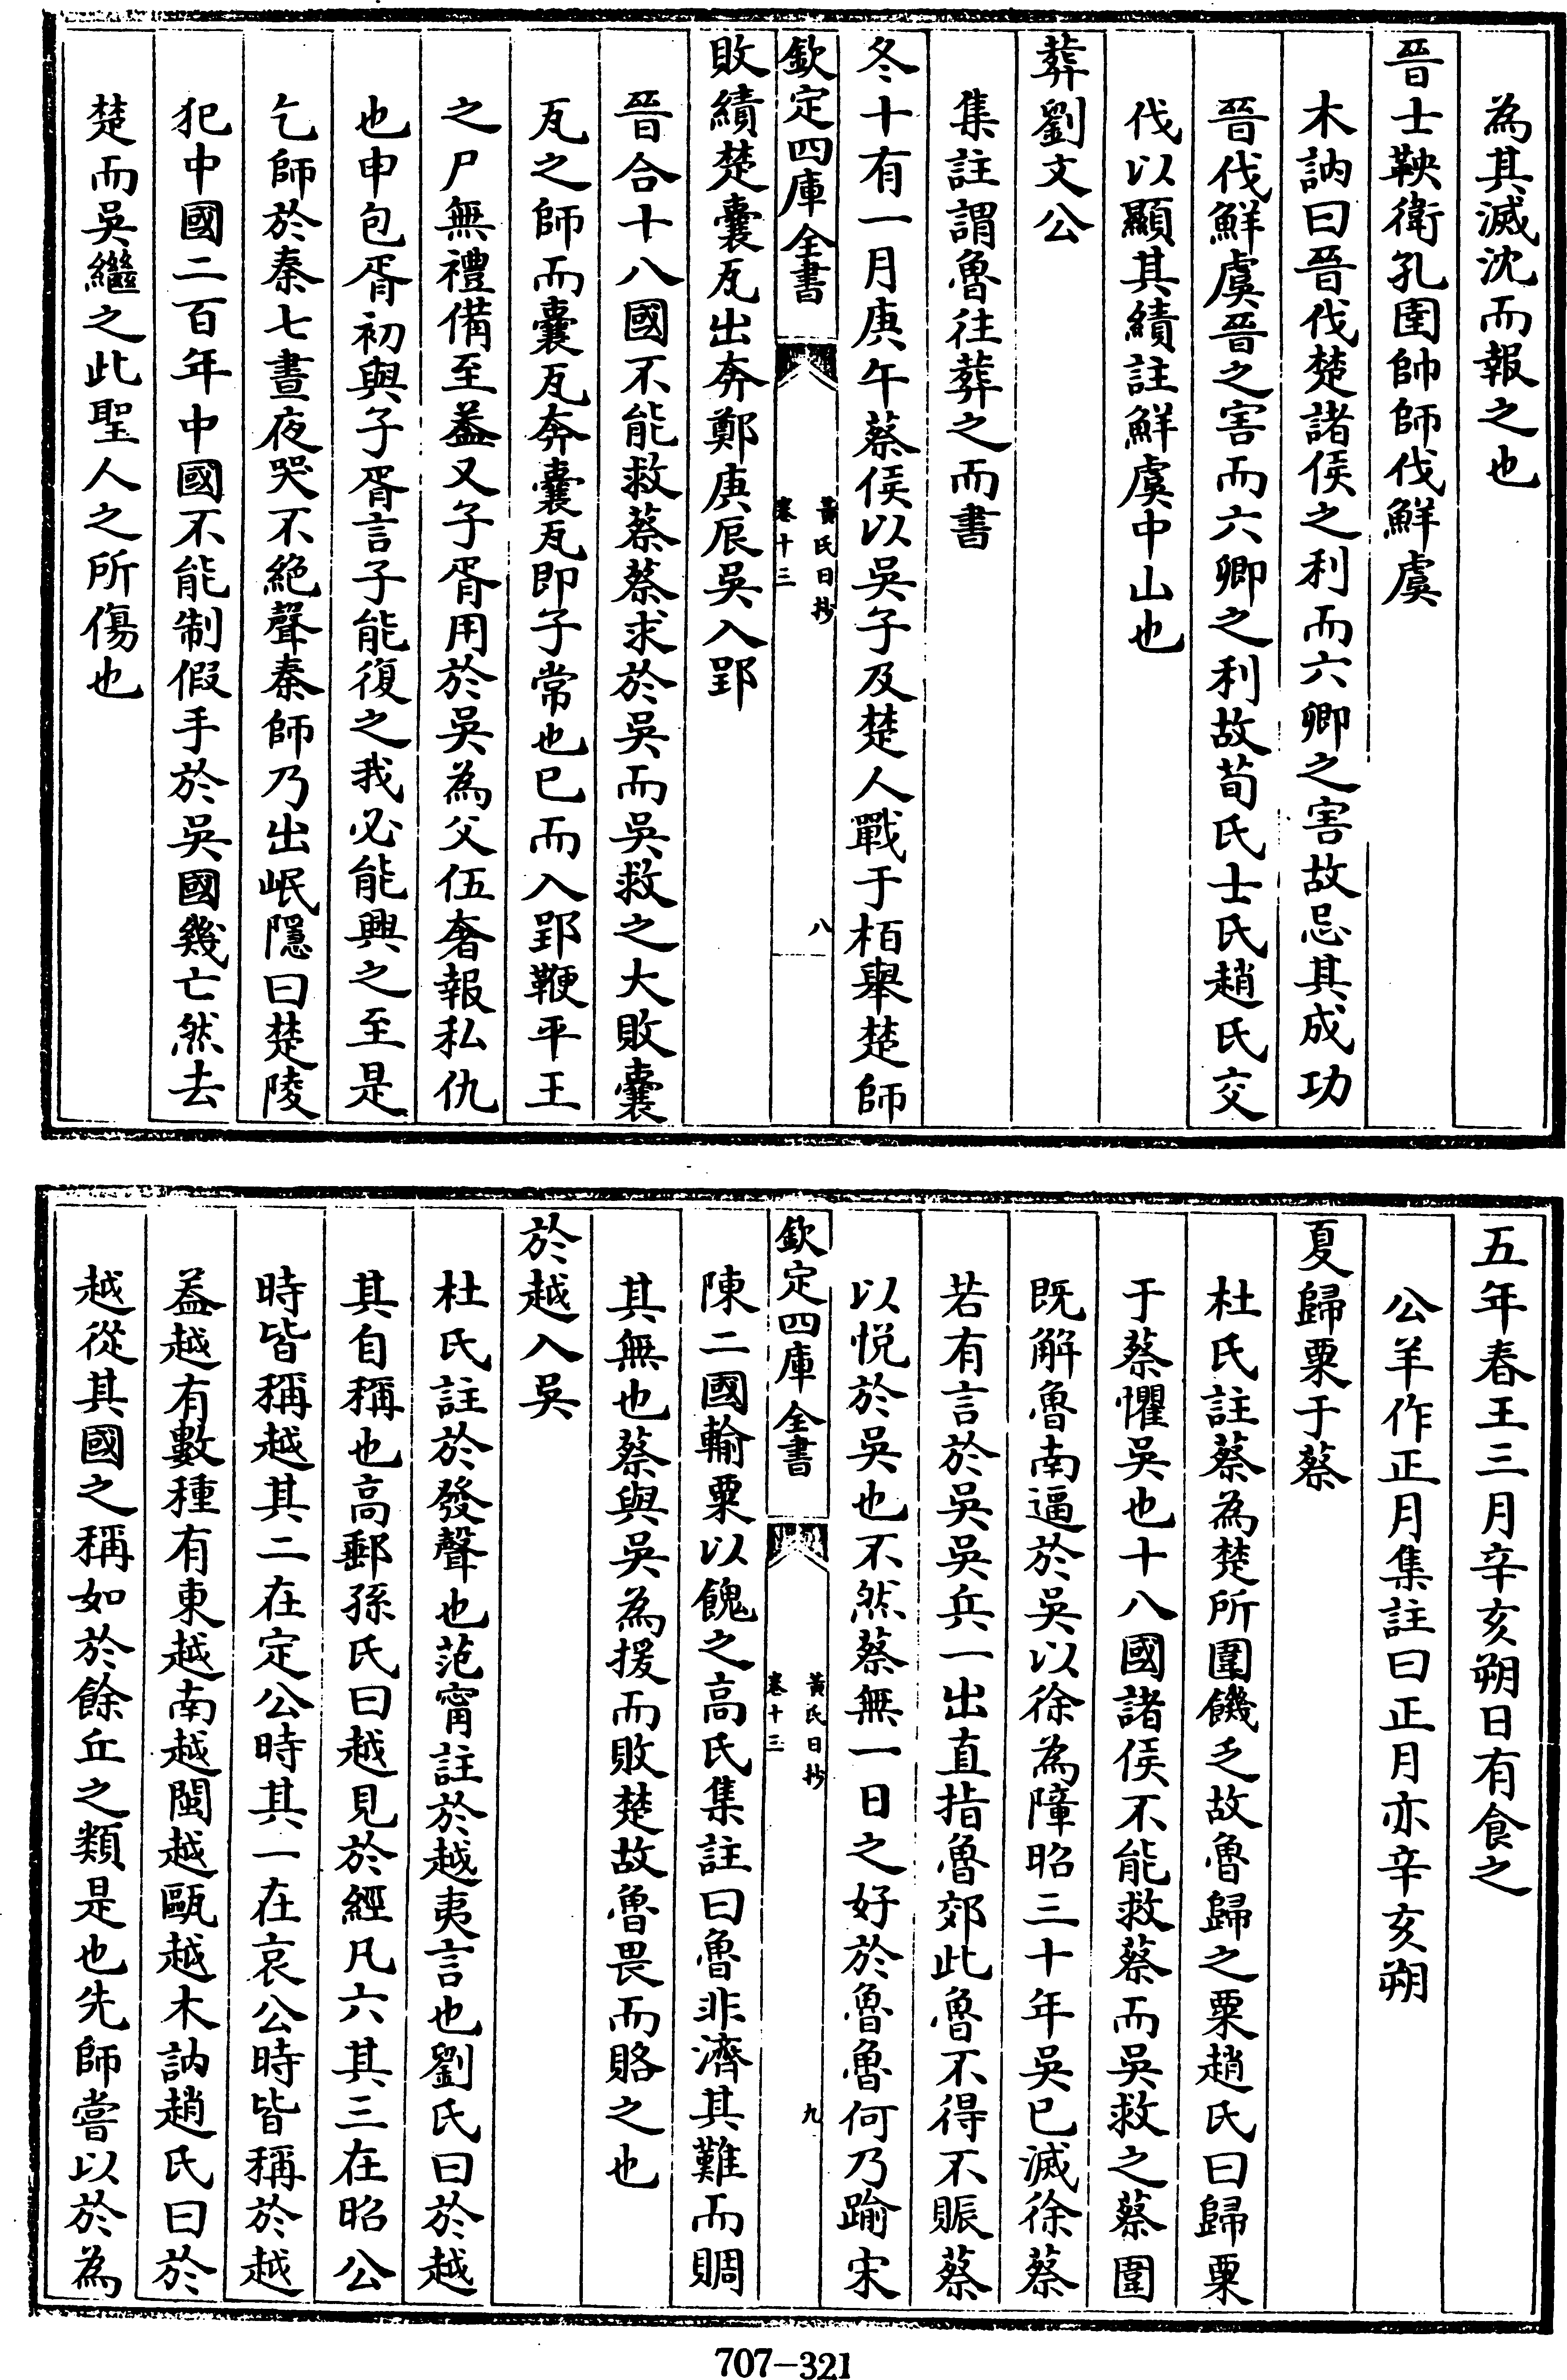 為其滅沈而報之也
晉士鞅衛孔圉帥師伐鮮虞
木訥曰晉伐楚諸侯之利而六卿之害故忌其成功
晉伐鮮虞晉之害而六卿之利故荀氏士氏趙氏交
伐以顯其績註鮮虞中山也
葬劉文公
集註謂魯往葬之而書
冬十有一月庚午蔡侯以吳子及楚人戰于栢舉楚師
欽定四庫全書
黃氏日抄
卷十三
八
敗績楚囊瓦出奔鄭庚辰吳入郢
晉合十八國不能救蔡蔡求於吳而吳救之大敗囊
瓦之師而囊瓦奔囊瓦即子常也已而入郢鞭平王
之尸無禮備至葢又子胥用於吳為父伍奢報私仇
也申包胥初與子胥言子能復之我必能興之至是
乞師於秦七晝夜哭不絶聲秦師乃出岷隱曰楚陵
犯中國二百年中國不能制假手於吳國幾亡然去
楚而吳繼之此聖人之所傷也
五年春王三月辛亥朔日有食之
公羊作正月集註曰正月亦辛亥朔
夏歸粟于蔡
杜氏註蔡為楚所圍饑乏故魯歸之粟趙氏曰歸粟
于蔡懼吳也十八國諸侯不能救蔡而吳救之蔡圍
既解魯南逼於吳以徐為障昭三十年吳已滅徐蔡
若有言於吳吳兵一出直指魯郊此魯不得不賑蔡
以悦於吳也不然蔡無一日之好於魯魯何乃踰宋
欽定四庫全書
黃氏日抄
卷十三
九
陳二國輸粟以餽之高氏集註曰魯非濟其難而賙
其無也蔡與吳為援而敗楚故魯畏而賂之也
於越入吳
杜氏註於發聲也范甯註於越夷言也劉氏曰於越
其自稱也高郵孫氏曰越見於經凡六其三在昭公
時皆稱越其二在定公時其一在哀公時皆稱於越
葢越有數種有東越南越閩越甌越木訥趙氏曰於
越從其國之稱如於餘丘之類是也先師嘗以於為
707-321